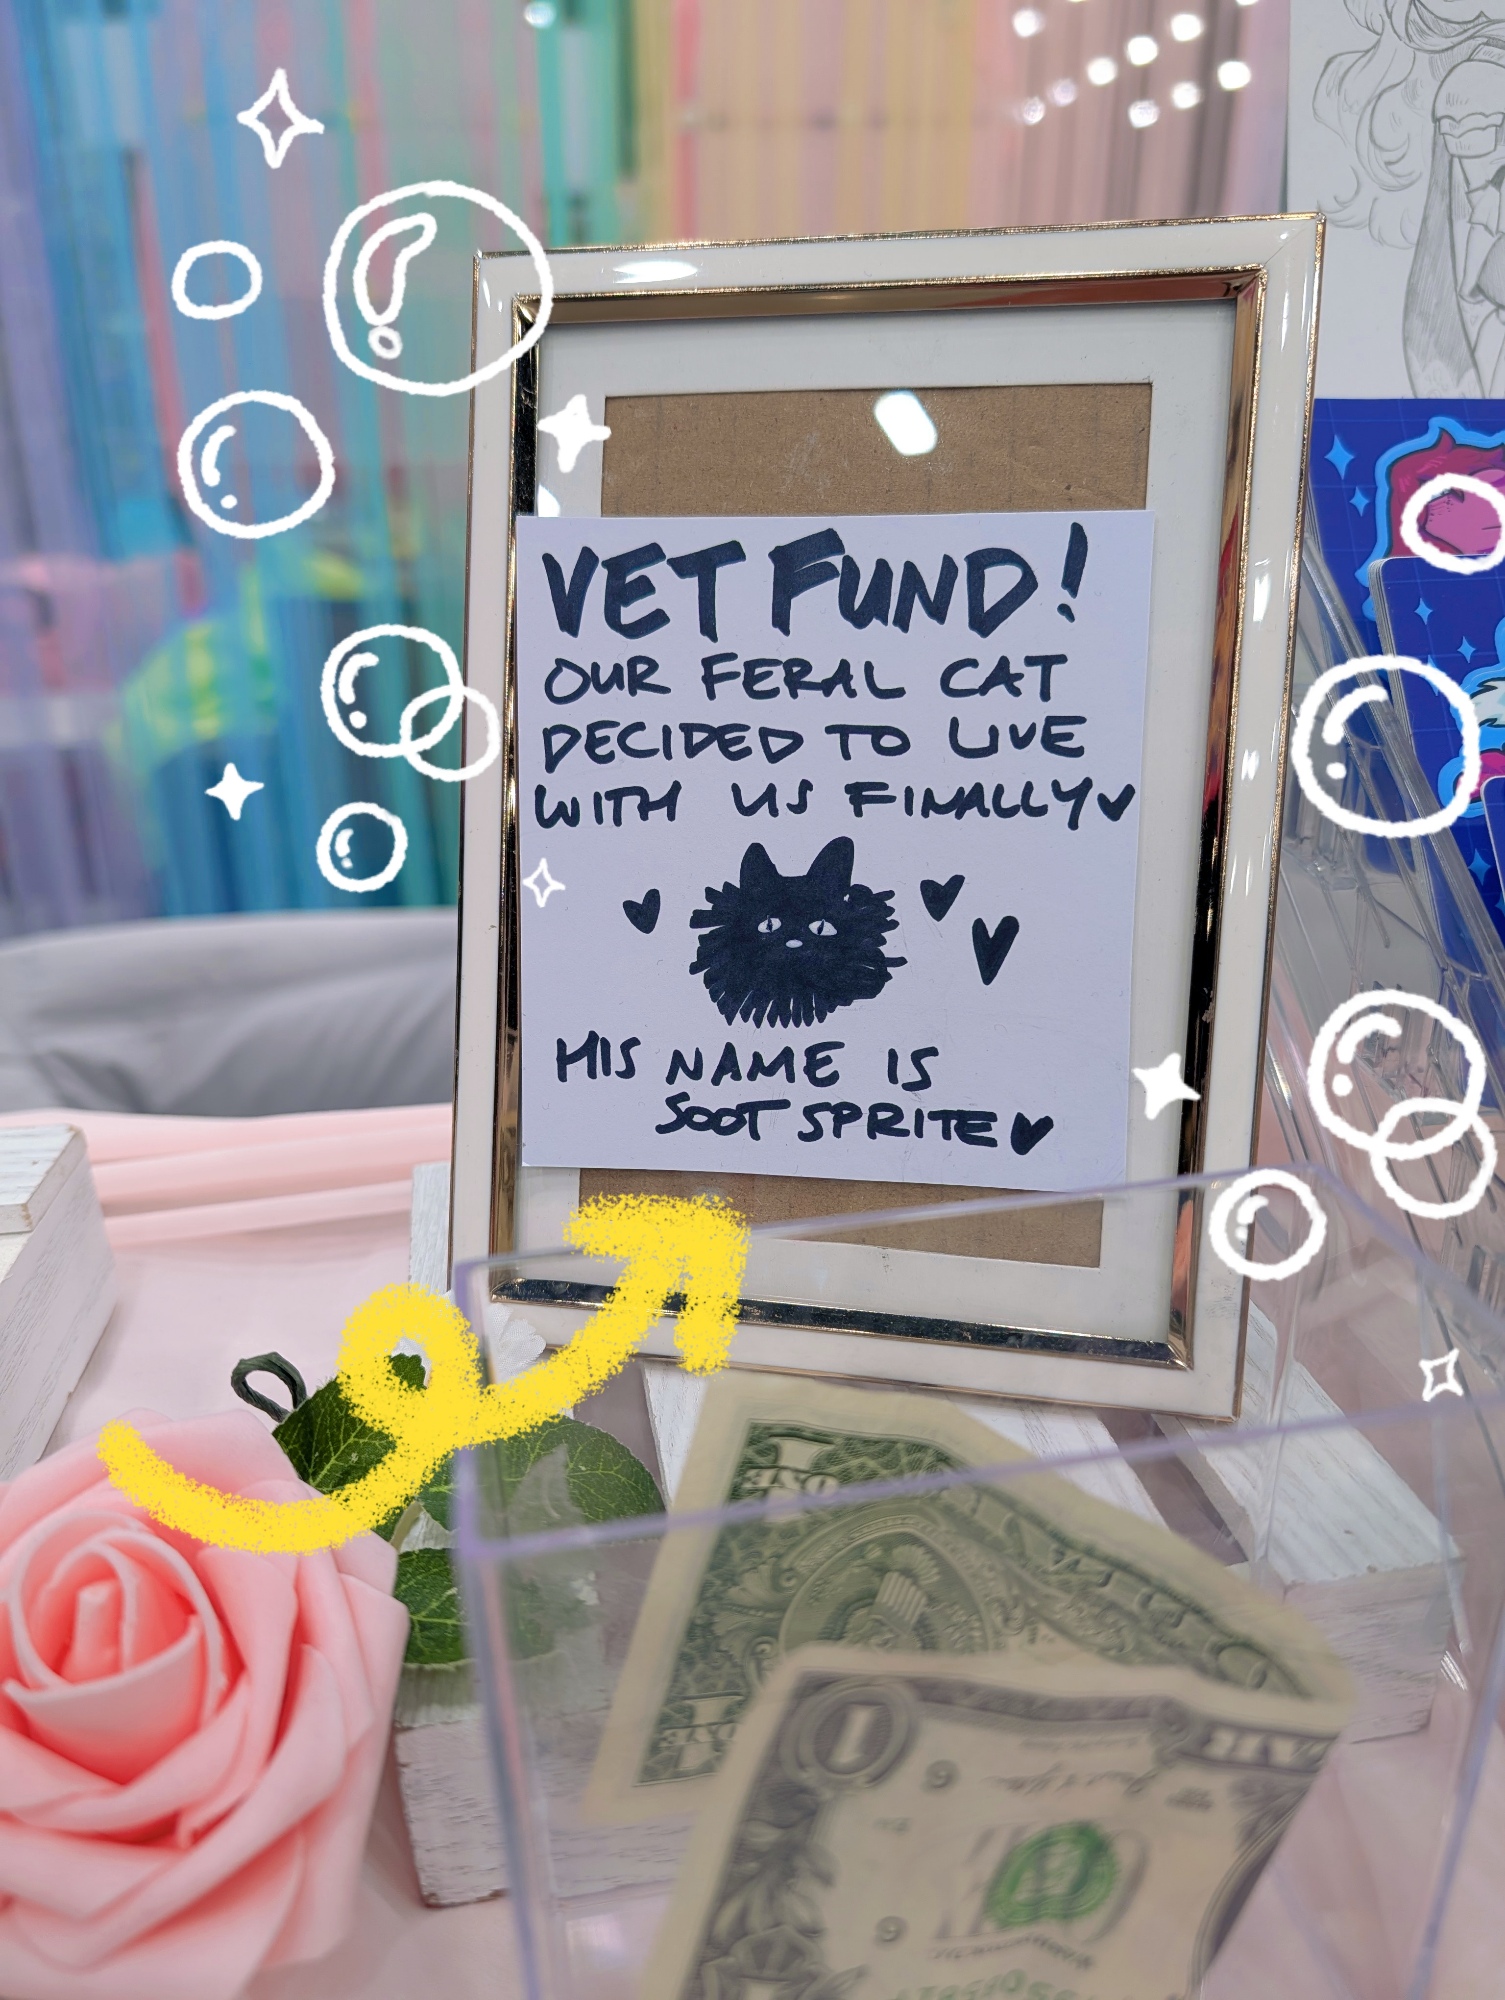 VET FUND!
OUR FERAL CAT
DECIDED TO LIVE
WITH US FINALLY
HIS NAME IS
SOOT SPRITE
ONE
1
6
6